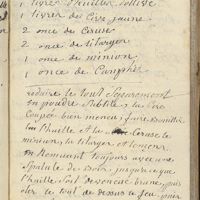 1 livres
1 livres de Cire jaune
2 once de Ceruse
2 once de litarge
1 once de minion
1 once de Camphre
reduire le tout separement
en poudre subtile, la Cire
Coupée bien menue, faire
huille et la Ceruse le
minion, la litarge et
en Remuant toujours avec une
spatule de bois, jusqu'a ce que
l'huille soit devenue brune, puis
oter le tout de dessus le feu, puis